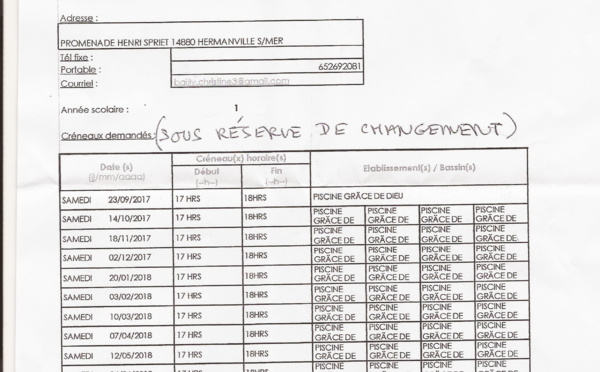 Adresse :
PROMENADE HENRI SPRIET 14880 HERMANVILLE S/MER
Tél fixe :
Portable : 652692081
Courriel : bailly.christine3@gmail.com
Année scolaire : 1
Créneaux demandés: (SOUS RÉSERVE DE CHANGEMENT)
Date (s) Créneau(x) horaire(s) Etablissement(s) / Bassin(s)
(jj/mm/aaaa) Début Fin
(--h--) (--h--)
SAMEDI 23/09/2017 17 HRS 18HRS PISCINE GRÂCE DE DIEU
PISCINE PISCINE PISCINE PISCINE
SAMEDI 14/10/2017 17 HRS 18HRS GRÂCE DE GRÂCE DE GRÂCE DE GRÂCE DE
PISCINE PISCINE PISCINE PISCINE
SAMEDI 18/11/2017 17 HRS 18HRS GRÂCE DE GRÂCE DE GRÂCE DE GRÂCE DE
PISCINE PISCINE PISCINE PISCINE
SAMEDI 02/12/2017 17 HRS 18HRS GRÂCE DE GRÂCE DE GRÂCE DE GRÂCE DE
PISCINE PISCINE PISCINE PISCINE
SAMEDI 20/01/2018 17 HRS 18HRS GRÂCE DE GRÂCE DE GRÂCE DE GRÂCE DE
PISCINE PISCINE PISCINE PISCINE
SAMEDI 03/02/2018 17 HRS 18HRS GRÂCE DE GRÂCE DE GRÂCE DE GRÂCE DE
PISCINE PISCINE PISCINE PISCINE
SAMEDI 10/03/2018 17 HRS 18HRS GRÂCE DE GRÂCE DE GRÂCE DE GRÂCE DE
PISCINE PISCINE PISCINE PISCINE
SAMEDI 07/04/2018 17 HRS 18HRS GRÂCE DE GRÂCE DE GRÂCE DE GRÂCE DE
PISCINE PISCINE PISCINE PISCINE
SAMEDI 12/05/2018 17 HRS 18HRS GRÂCE DE GRÂCE DE GRÂCE DE GRÂCE DE
PISCINE PISCINE PISCINE PISCINE